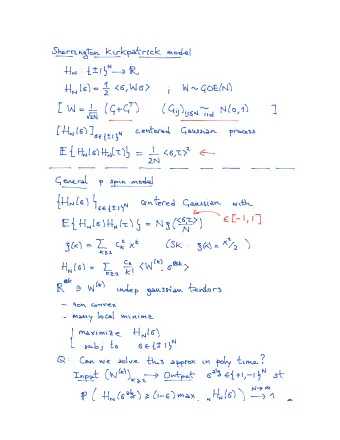 Sherrington Kirkpatrick model
H_N : {±1}^N → ℝ
H_N(σ) = 1/2 <σ, Wσ> ; W ~ GOE(N)
[ W = 1/√2N (G+G^T) (G_ij)_{ij≤N} ~iid N(0,1) ]
[H_N(σ)]_{σ∈{±1}^N} centered Gaussian process
E{H_N(σ)H_N(τ)} = 1/2N <σ,τ>² ←
General p spin model
{H_N(σ)}_{σ∈{±1}^N} centered Gaussian with
E{H_N(σ)H_N(τ)} = N ξ(<σ,τ>/N) ∈[-1,1]
ξ(x) = Σ_{k≥2} c_k² x^k (SK : ξ(x) = x²/2 )
H_N(σ) = Σ_{k≥2} c_k/k! <W^(k), σ^⊗k>
ℝ^⊗k ∋ W^(k) indep gaussian tensors
- non convex
- many local minima
{ maximize H_N(σ)
subj to σ∈{±1}^N
Q: Can we solve this approx in poly time?
Input (W^(k))_{k≥2} → Output σ^alg ∈{+1,-1}^N st
P( H_N(σ^alg) ≥ (1-ε) max H_N(σ) ) → 1 N→∞